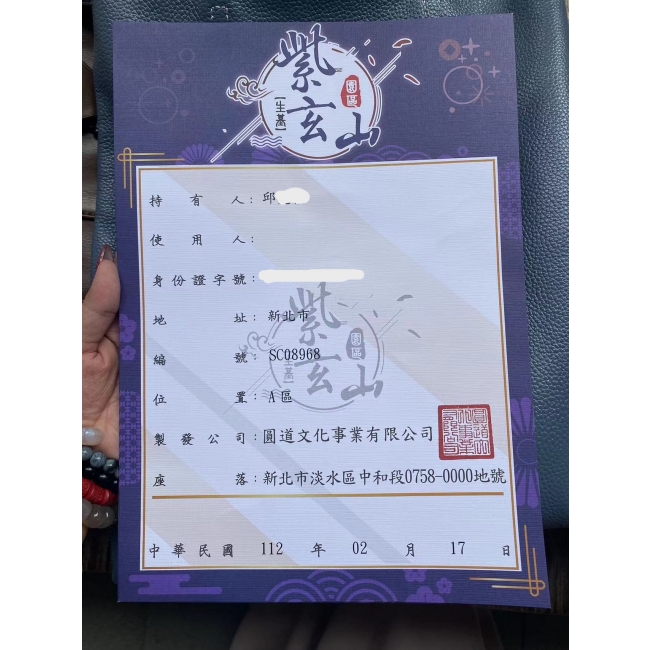 紫玄山
園區
【生基】
持有人：邱
使用人：
身份證字號：
地址：新北市
編號：SC08968
位置：A區
製發公司：圓道文化事業有限公司
座落：新北市淡水區中和段0758-0000地號
紫玄山
園區
【生基】
中華民國 112 年 02 月 17 日